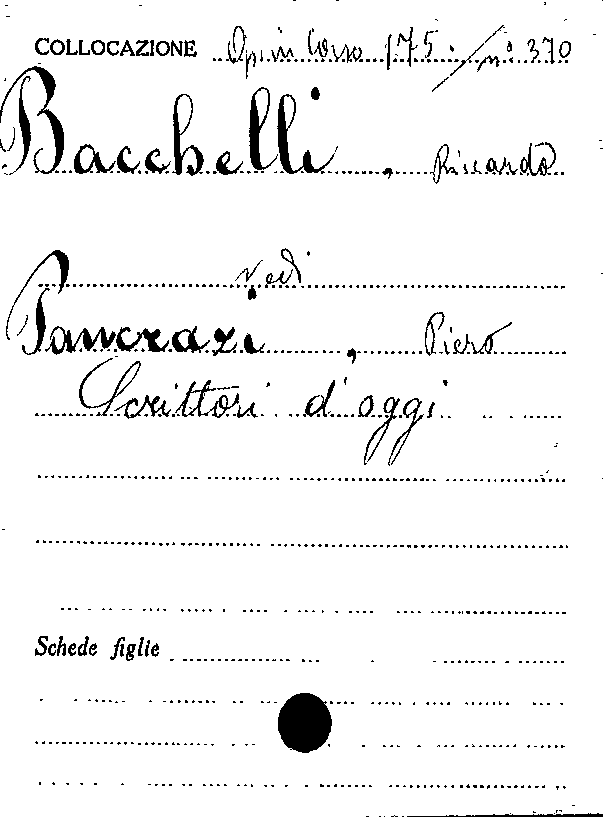 COLLOCAZIONE Op. in Corso 175. / n° 370
Bacchelli, Riccardo
Vedi
Pancrazi, Piero
Scrittori d'oggi
Schede figlie